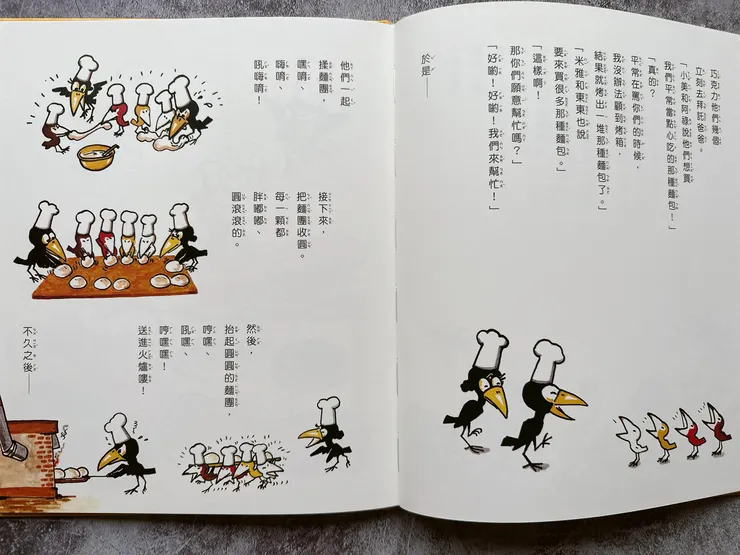 巧克力他們幾個
立刻去拜託爸爸。
「小美和阿尋說他們想買
我們平常當點心吃的那種麵包！」
「真的？
平常在罵你們的時候，
我沒辦法顧到烤箱，
結果就烤出一堆那種麵包了。」
「米雅和東東也說
要來買很多那種麵包。」
「這樣啊！
那你們願意幫忙嗎？」
「好喲！好喲！我們來幫忙！」
於是──
他們一起
揉麵團，
嘿唷、
嗨唷、
吼嗨唷！
接下來，
把麵團收圓。
每一顆都
胖嘟嘟、
圓滾滾的。
然後，
抬起圓圓的麵團，
哼嘿、
吼嘿、
哼嘿嘿！
送進火爐嘍！
不久之後──